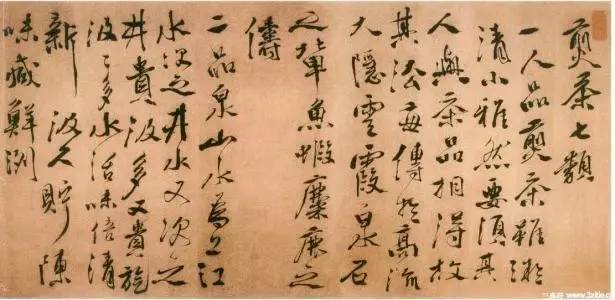 煎茶七類
一人品煎茶雖微
清小雅然要須其
人與茶品相得故
其法每傳於高流
大隱雲霞泉石
之輩魚蝦麋鹿之
儔
二品泉山水為上江
水次之井水又次之
井貴汲多又貴旋
汲汲多水活味倍清
新汲久貯陳
味減鮮冽